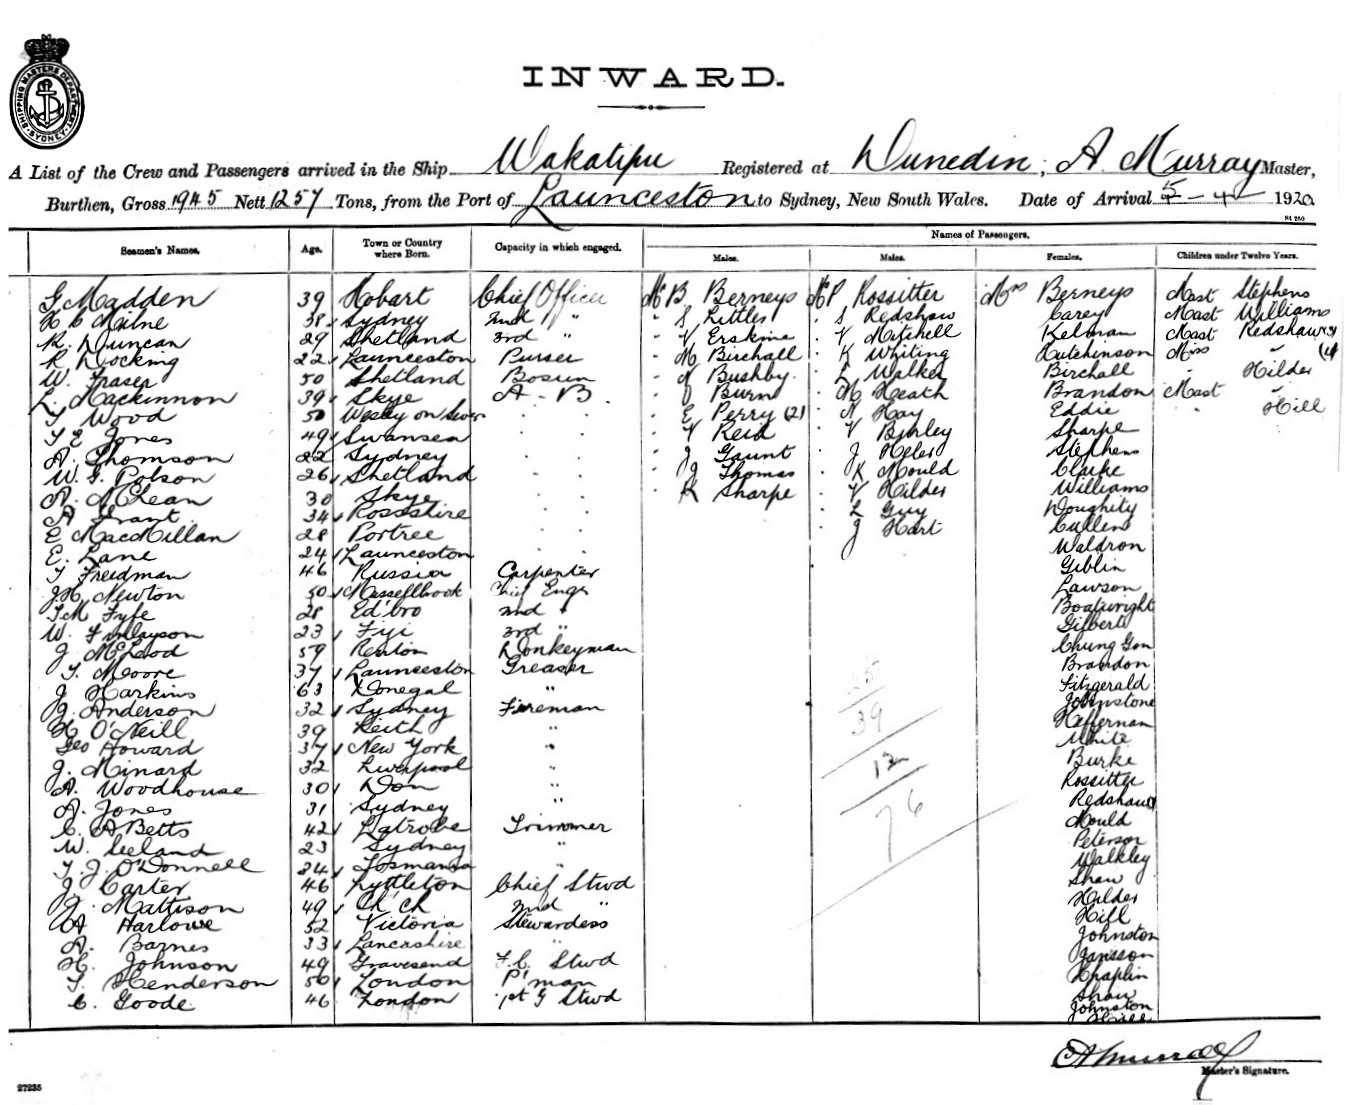 SHIPPING MASTER'S DEPARTMENT
SYDNEY
INWARD.
A List of the Crew and Passengers arrived in the Ship Wakatipu Registered at Dunedin, A. Murray Master,
Burthen, Gross 1945 Nett 1257 Tons, from the Port of Launceston to Sydney, New South Wales. Date of Arrival 5 - 4 - 1920
Seamen's Names. Age. Town or Country where Born. Capacity in which engaged. Names of Passengers.
Males. Males. Females. Children under Twelve Years.
Madden 39 Hobart Chief Officer Mr B Berneys Mr P Rossitter Mrs Berneys Mast Stephens
Milne 38 Sydney 2nd " " S Littler " S Redshaw Carey Mast Williams
K. Duncan 29 Shetland 3rd " " V Erskine " V Mitchell Kelman Mast Redshaw
R Hocking 22 Launceston Purser " M Birchall " K Whiting Hutchinson Miss "
W. Fraser 50 Shetland Bosun " Bushby " L Walker Birchall " Hilder
L. Mackinnon 39 Skye A. B. " Burn " M Heath Brandon Mast "
Wood 50 " E Perry (2) " N Hay Eddie " Hill
T E Jones 49 Swansea " V Reid " V Burley Sharpe
A. Thomson 22 Sydney " J Gaunt " J Peler Stephens
W. G. Polson 26 Shetland " J Thomas " K Mould Clarke
A. McLean 30 Skye " K Sharpe " V Hilder Williams
A Grant 34 Rossshire " L Guy Doughity
E MacMillan 28 Portree " J Hart Cullen
E. Lane 24 Launceston Waldron
T Freidman 46 Russia Carpenter Giblin
J.H. Newton 50 Musselbrook Chief Engr Lawson
T.M Fyfe 28 Ed'bro 2nd " Boatwright
W. Finlayson 23 Fiji 3rd " Gilbert
J McLeod 59 Renton Donkeyman Chung Gon
T. Moore 37 Launceston Greaser Brandon
J Harkins 63 Donegal " Fitzgerald
J. Anderson 32 Sydney Fireman Johnstone
H O'Neill 39 Leith " Heffernan
Geo Howard 37 New York " White
J. Minard 32 Liverpool " Burke
A. Woodhouse 30 Don " Rossitter
A. Jones 31 Sydney " Redshaw
C. A Betts 42 Latrobe Trimmer Mould
W. Leeland 23 Sydney " Peterson
T. J. O'Donnell 24 Tasmania " Walkley
J. Carter 46 Lyttleton Chief Stwd Shaw
J. Mattison 49 Ch Ch 2nd " Hilder
A Harlowe 52 Victoria Stewardess Hill
A. Barnes 33 Lancashire " Johnston
H. Johnson 49 Gravesend F.C. Stwd Jansson
T. Henderson 50 London P'man Chaplin
C. Goode 46 London 1st G Stwd Shaw
Johnston
Hill
39
12
76
A Murray
Master's Signature.
27235